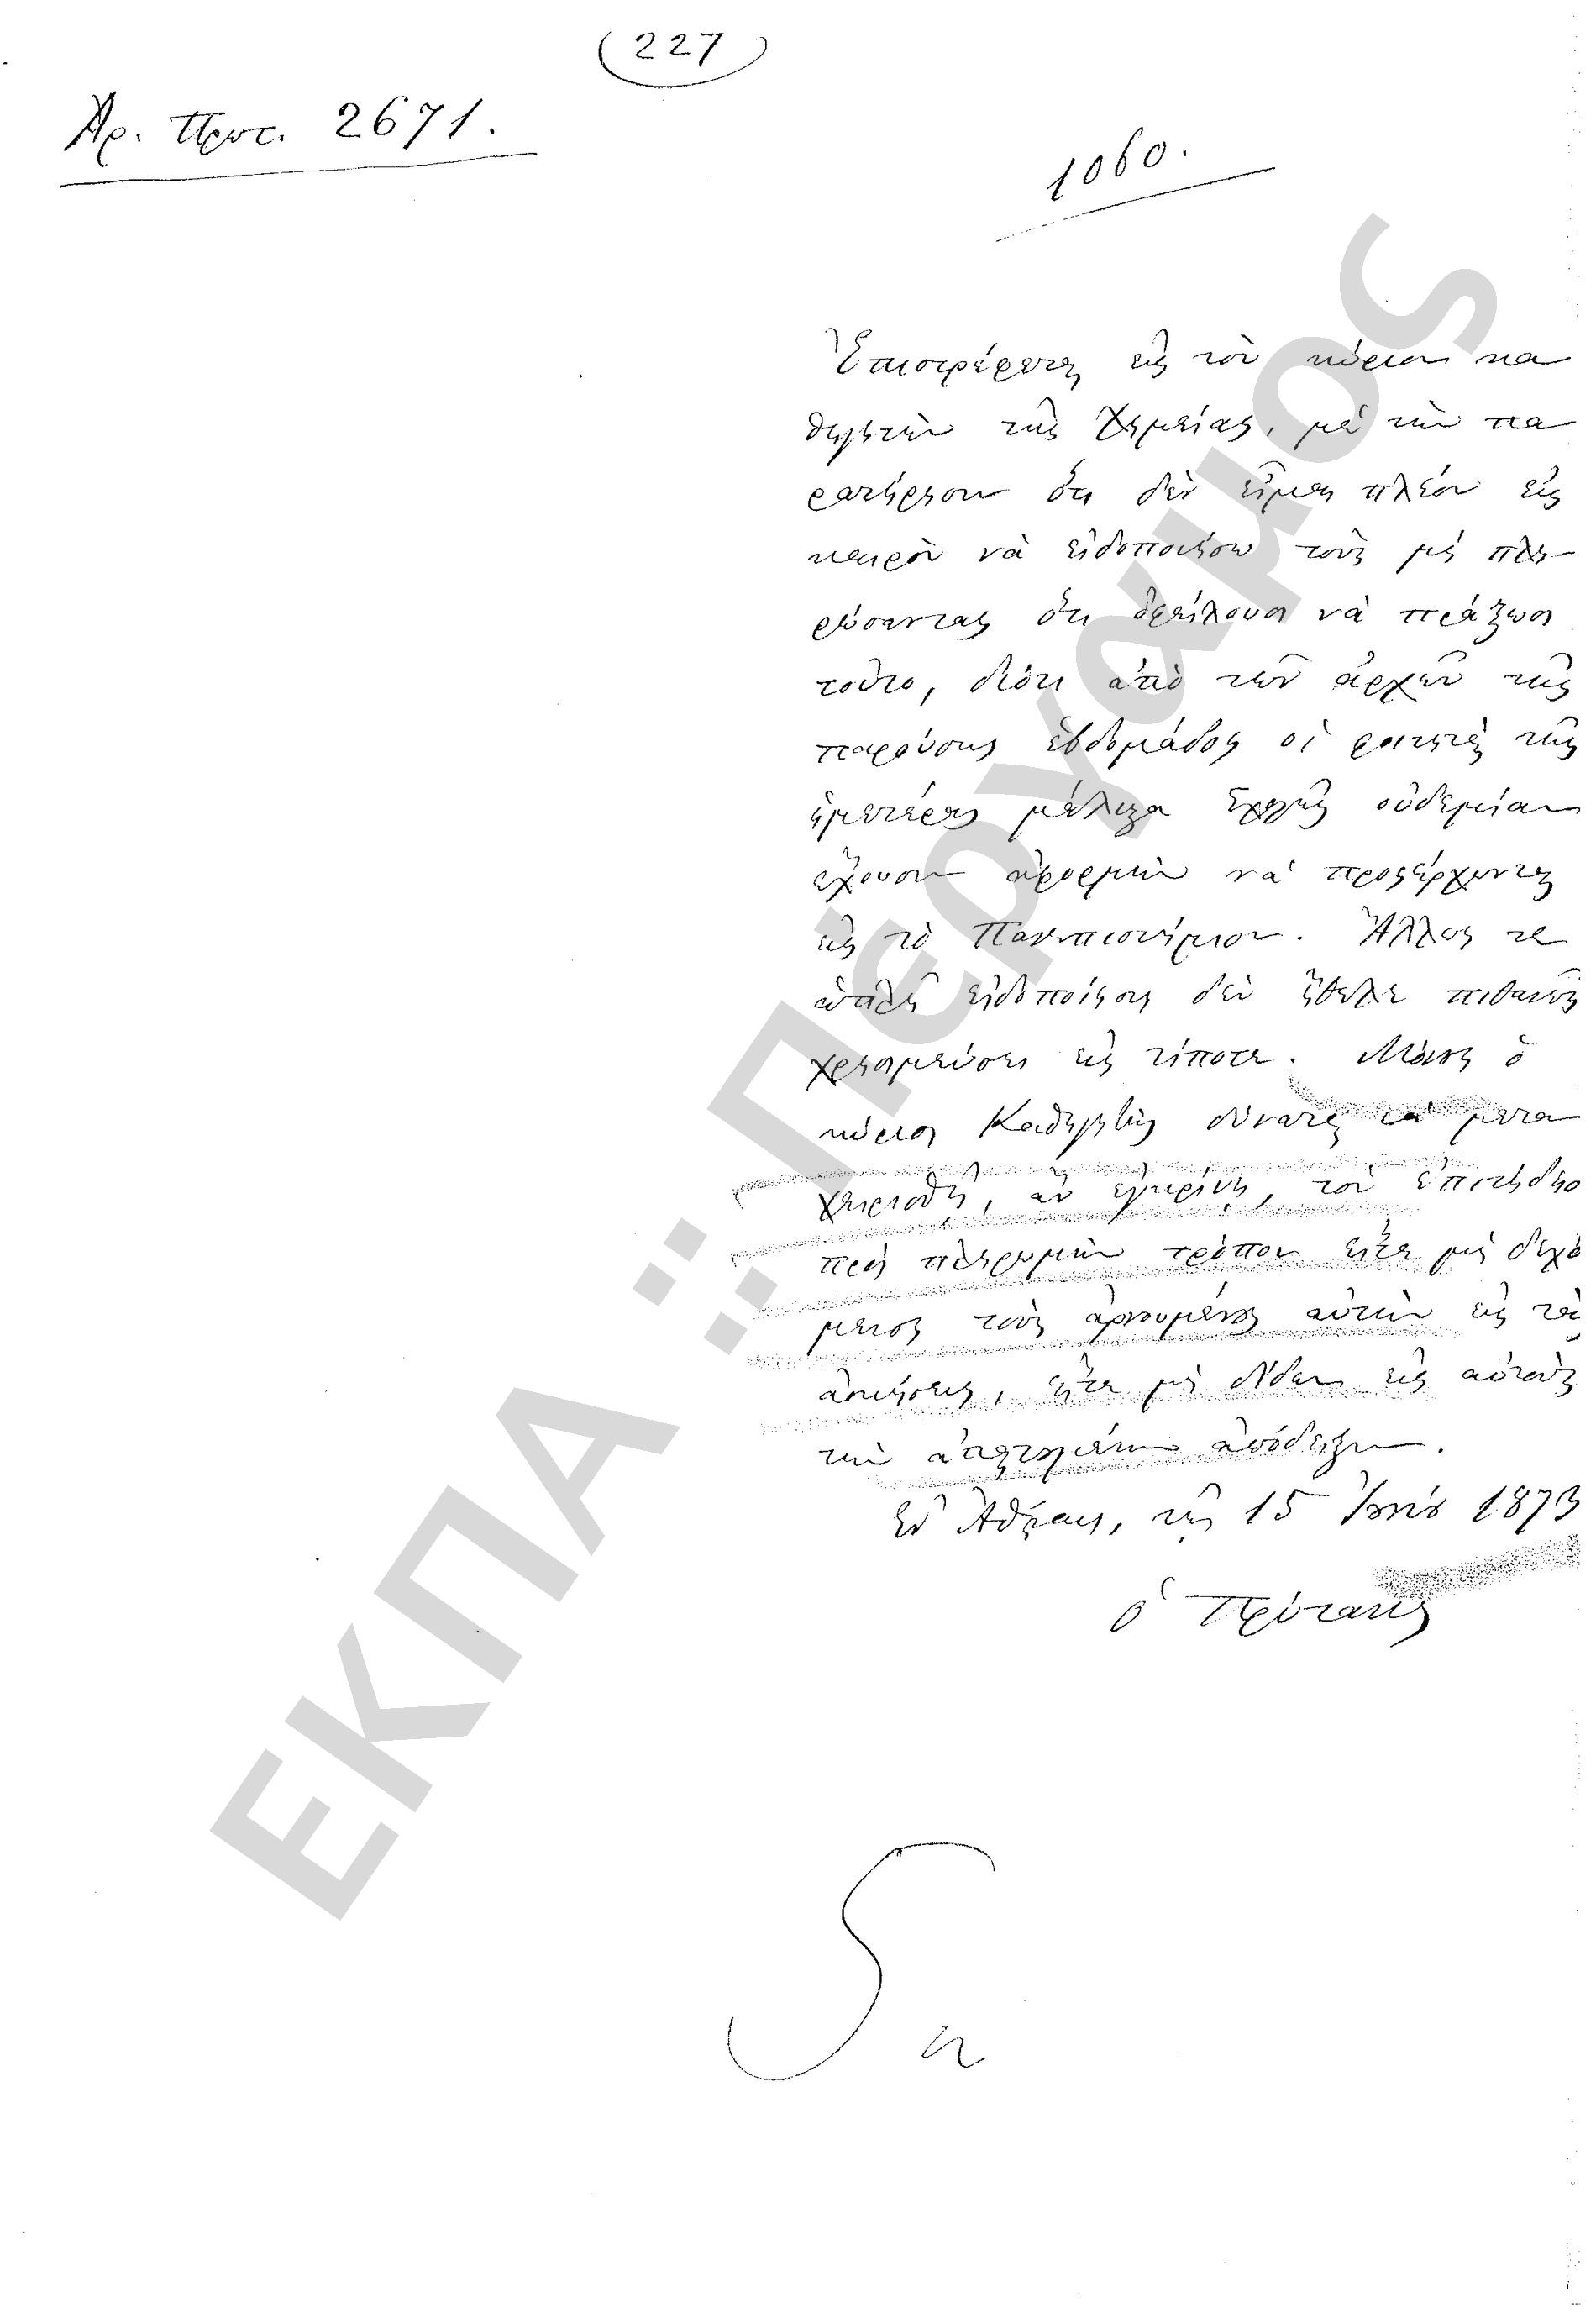 (227)
Ἀρ. Πρωτ. 2671.
1060.
Ἐπιστρέφεται εἰς τὸν κύριον κα
θηγητὴν τῆς Χημείας, μὲ τὴν πα
ρατήρησιν ὅτι δὲν εἶμαι πλέον εἰς
καιρὸν νὰ εἰδοποιήσω τοὺς μὴ πλη-
ρώσαντας ὅτι ὀφείλουσι νὰ πράξωσι
τοῦτο, διότι ἀπὸ τῶν ἀρχῶν τῆς
παρούσης ἑβδομάδος οἱ φοιτηταὶ τῆς
ἡμετέρας μάλιστα Σχολῆς οὐδεμίαν
ἔχουσιν ἀφορμὴν νὰ προσέρχωνται
εἰς τὸ Πανεπιστήμιον. Ἄλλως τε
ἁπλῆ εἰδοποίησις δὲν ἤθελε πιθανῶς
χρησιμεύσει εἰς τίποτε. Μόνος ὁ
κύριος Καθηγητὴς δύναται νὰ μετα
χειρισθῇ, ἂν ἐγκρίνῃ, τὸν ἐπιτήδειο
πρὸς πληρωμὴν τρόπον εἴτε μὴ δεχό
μενος τοὺς ἀρνουμένους αὐτὴν εἰς τὰς
ἀσκήσεις, εἴτε μὴ δίδων εἰς αὐτοὺς
τὴν ἀπαιτουμένην ἀπόδειξιν.
Ἐν Ἀθήναις, τῇ 15 Ἰουνίου 1873
ὁ Πρύτανις
ΕΚΠΑ :: Πέργαμος